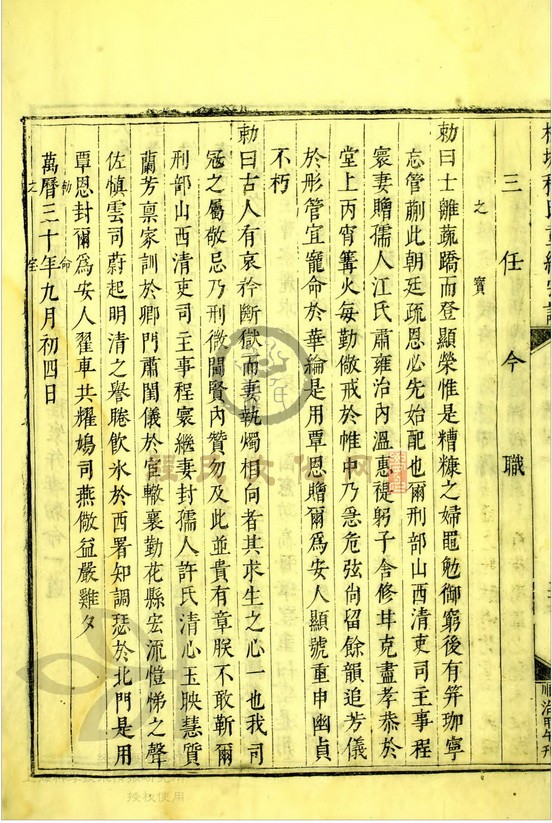 三任今職
之寶
勅曰士雖蔬蹻而登顯榮惟是糟糠之婦黽勉御窮後有笄珈寧
忘管蒯此朝廷疏恩必先始配也爾刑部山西清吏司主事程
寰妻贈孺人江氏肅雍治內溫惠禔躬子舍修甘克盡孝恭於
堂上丙宵篝火每勤儆戒於帷中乃悬危弦尚留餘韻追芳儀
於彤管宜寵命於華綸是用覃恩贈爾為安人顯號重申幽貞
不朽
勅曰古人有哀矜斷獄而妻執燭相向者其求生之心一也我司
冠之屬敬忌乃刑微闇賢內贊勿及此並貴有章朕不敢靳爾
刑部山西清吏司主事程寰繼妻封孺人許氏清心玉映慧質
蘭芳禀家訓於卿門肅閨儀於宦轍襄勤花縣宏流愷悌之聲
佐慎雲司蔚起明清之譽睠飲氷於西署知調瑟於北門是用
覃恩封爾為安人翟車共耀鳩司燕儆益嚴雞夕
勅命
萬曆三十年九月初四日
之寶
授权使用